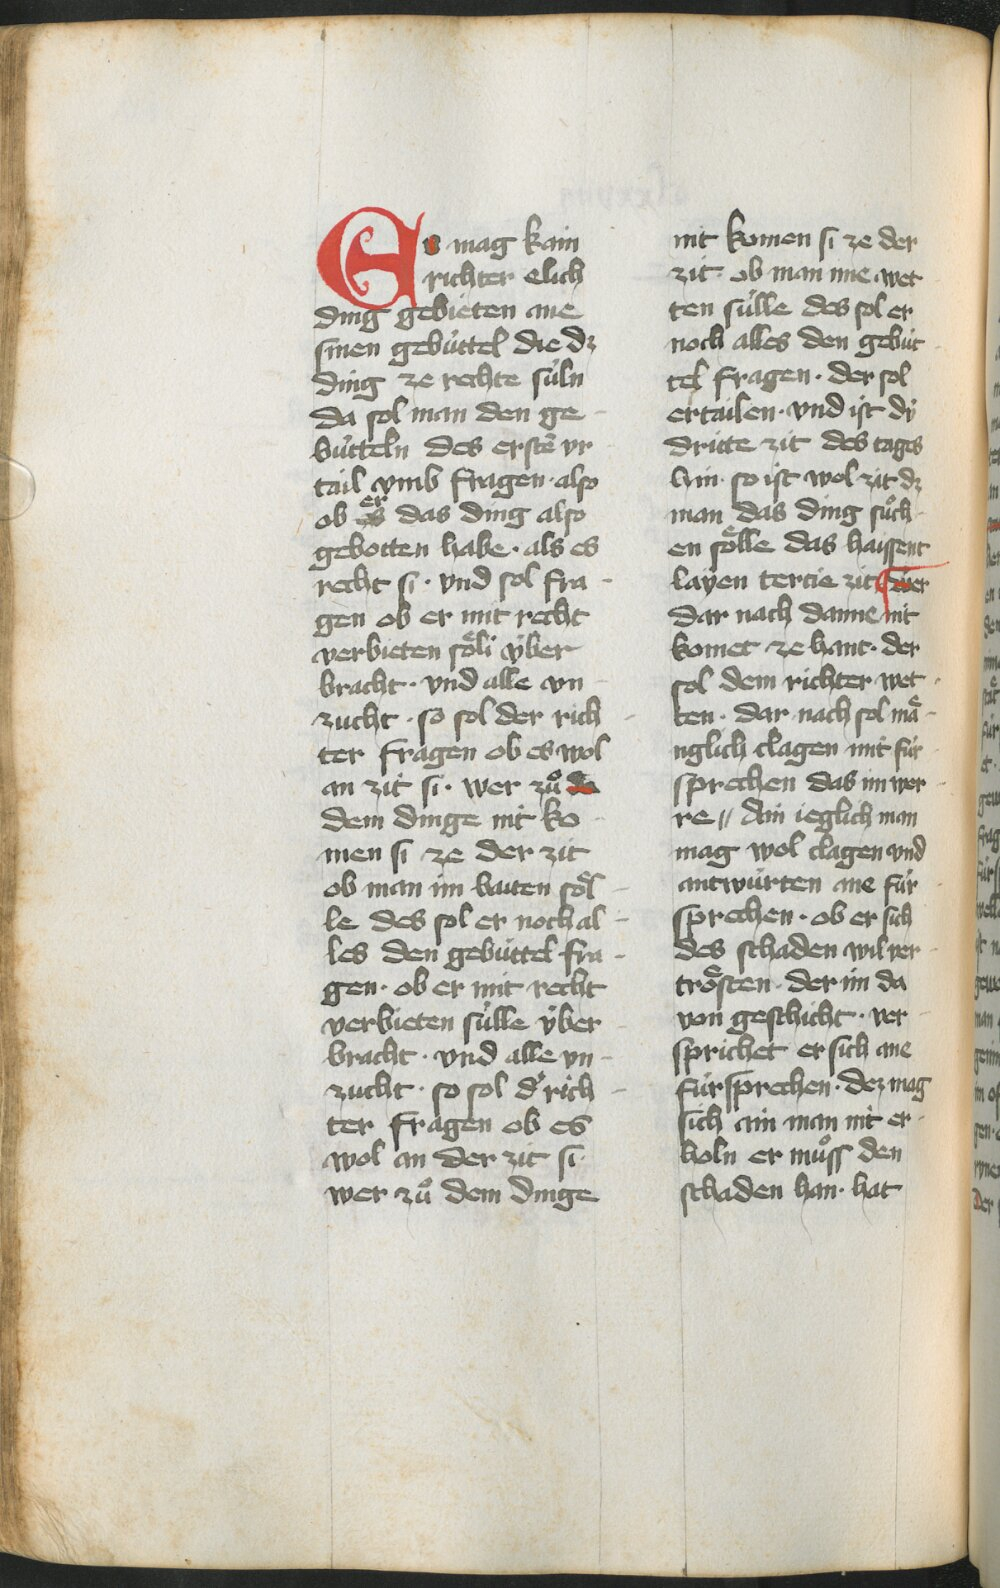 Es mag kain
richter elich
ding gebieten ane
sinen gebúttel die dz
ding ze rechte súln
da sol man den ge
bútteln des erstē vr
tail vmb fragen · also
ob er das ding also
gebotten habe · als es
recht si · vnd sol fra
gen ob er mit recht
verbieten soͤli úber
bracht · vnd alle vn
zucht · so sol der rich
ter fragen ob es wol
an zit si · wer zuͦ
dem dinge nit ko
men si ze der zit
ob man im baiten soͤl
le des sol er noch al
les den gebúttel fra
gen · ob er mit recht
verbieten súlle úber
bracht · vnd alle vn
zucht · so sol d' rich
ter fragen ob es
wol an der zit si ·
wer zuͦ dem dinge
nit komen si ze der
zit · ob man ime wet
ten súlle des sol er
noch alles den gebút
tel fragen · der sol
ertailen · vnd ist dú
dritte zit des tages
hin · so ist wol zit dz
man das ding suͦch
en soͤlle das haissent
layen tercie zit wer
dar nach danne nit
komet ze hant · der
sol dem richter wet
ten · dar nach sol maͤ
nglich clagen mit fúr
sprechen das im wer
re // Ain ieglich man
mag wol clagen vnd
antwúrten ane fúr
sprechen · ob er sich
des schaden wil ver
troͤsten · der im da
von geschicht · ver
sprichet er sich ane
fúrsprechen · dez mag
sich ain man nit er
holn er muͦss den
schaden han · hat